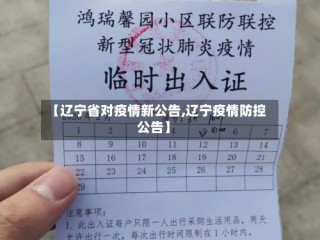 鸿瑞馨园小区联防联控
新型冠状肺炎疫情
临时出入证
【辽宁省对疫情新公告,辽宁疫情防控
公告】
8 9 10 11 12 13 14
15 16 17 18 19 20 21
22 23 24 25 26 27 28
29 30 31
注:
1、此出入证每户只限一人出行采购生活用品,两天
允许出行一次,每次出行时间限制在1小时内